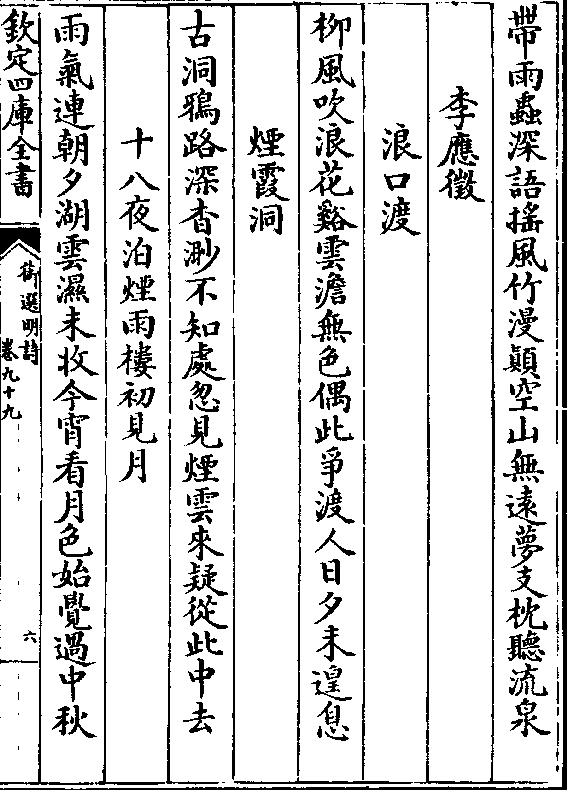 帶雨蟲深語搖風竹漫顛空山無遠夢支枕聽流泉
李應徵
浪口渡
柳風吹浪花谿雲澹無色偶此爭渡人日夕未遑息
煙霞洞
古洞鴉路深杳渺不知處忽見煙雲來疑從此中去
十八夜泊煙雨樓初見月
雨氣連朝夕湖雲濕未收今宵看月色始覺過中秋
欽定四庫全書
御選明詩
卷九十九
六